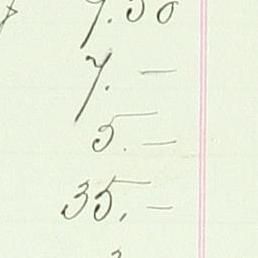 7.50
7. —
5. —
35. —